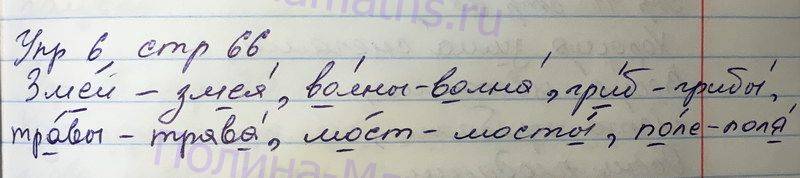 Упр 6 стр 66
Змéй - змея́, во́лны-волна́, гриб - грибы́,
тра́вы - трава́, мо́ст - мосты́, по́ле-поля́